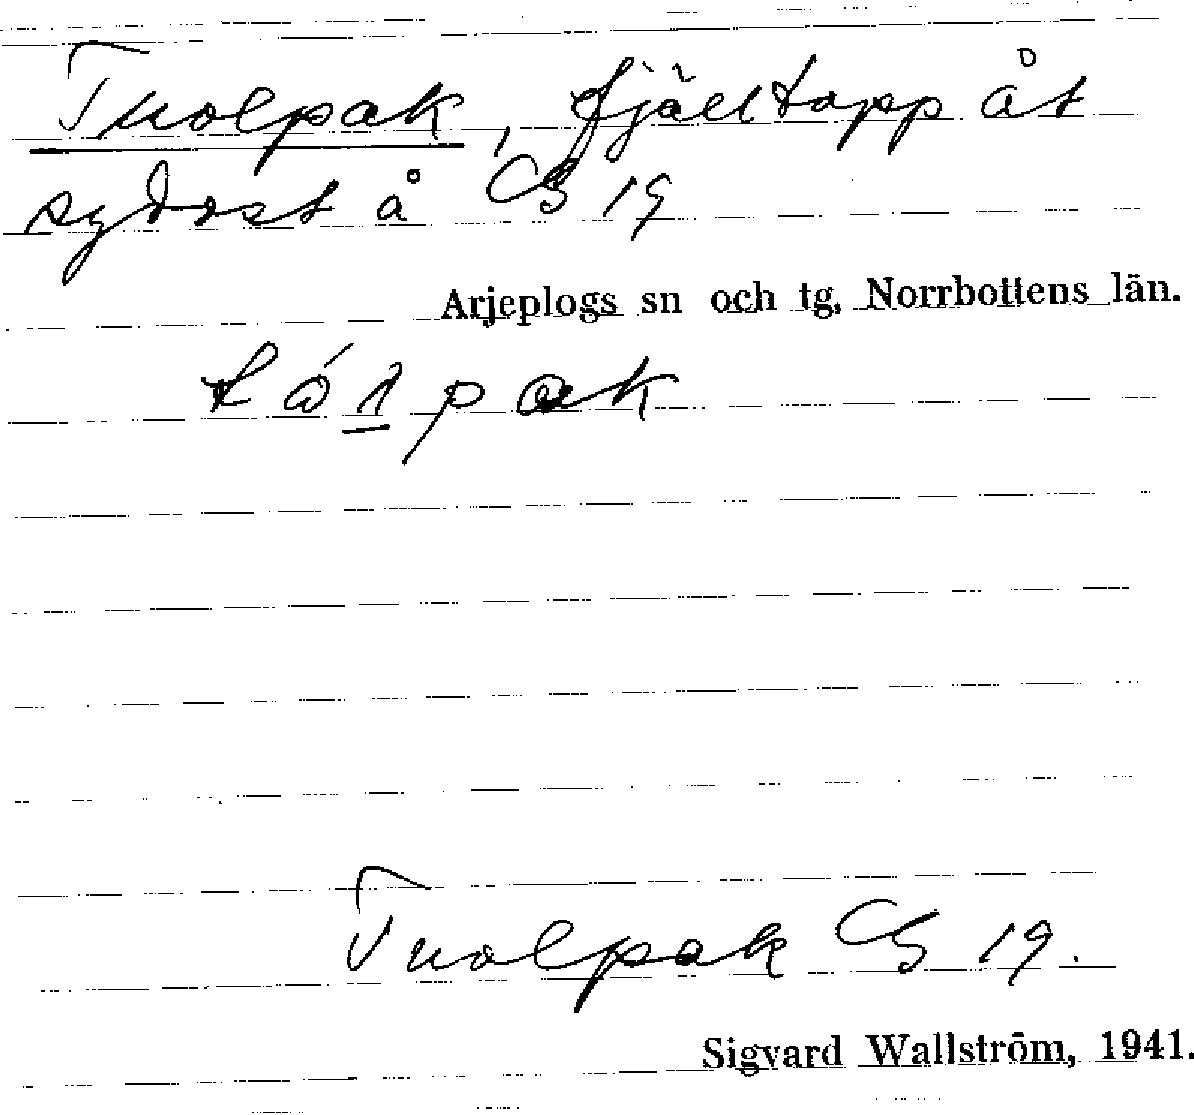 Tuolpak, fjälltopp åt
sydost å GS 19
Arjeplogs sn och tg, Norrbottens län.
Tuolpak GS 19.
Sigvard Wallström, 1941.